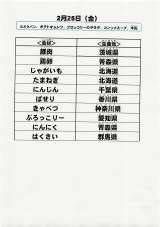 2月25日（金）
ミルクパン、ポテトオムレツ、ブロッコリーのサラダ、コンソメスープ、牛乳
＜食材＞ ＜生産地＞
豚肉 茨城県
鶏卵 青森県
じゃがいも 北海道
たまねぎ 北海道
にんじん 千葉県
ぱせり 香川県
きゃべつ 神奈川県
ぶろっこりー 愛知県
にんにく 青森県
はくさい 群馬県